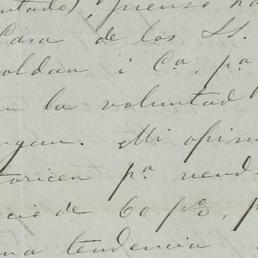 ntado), pienso ha
Casa de los SS.
oldan i Ca, pa
en la voluntad
ngan. Mi opin
toricen pa vend
cio de 60 p%, p
una tendencia